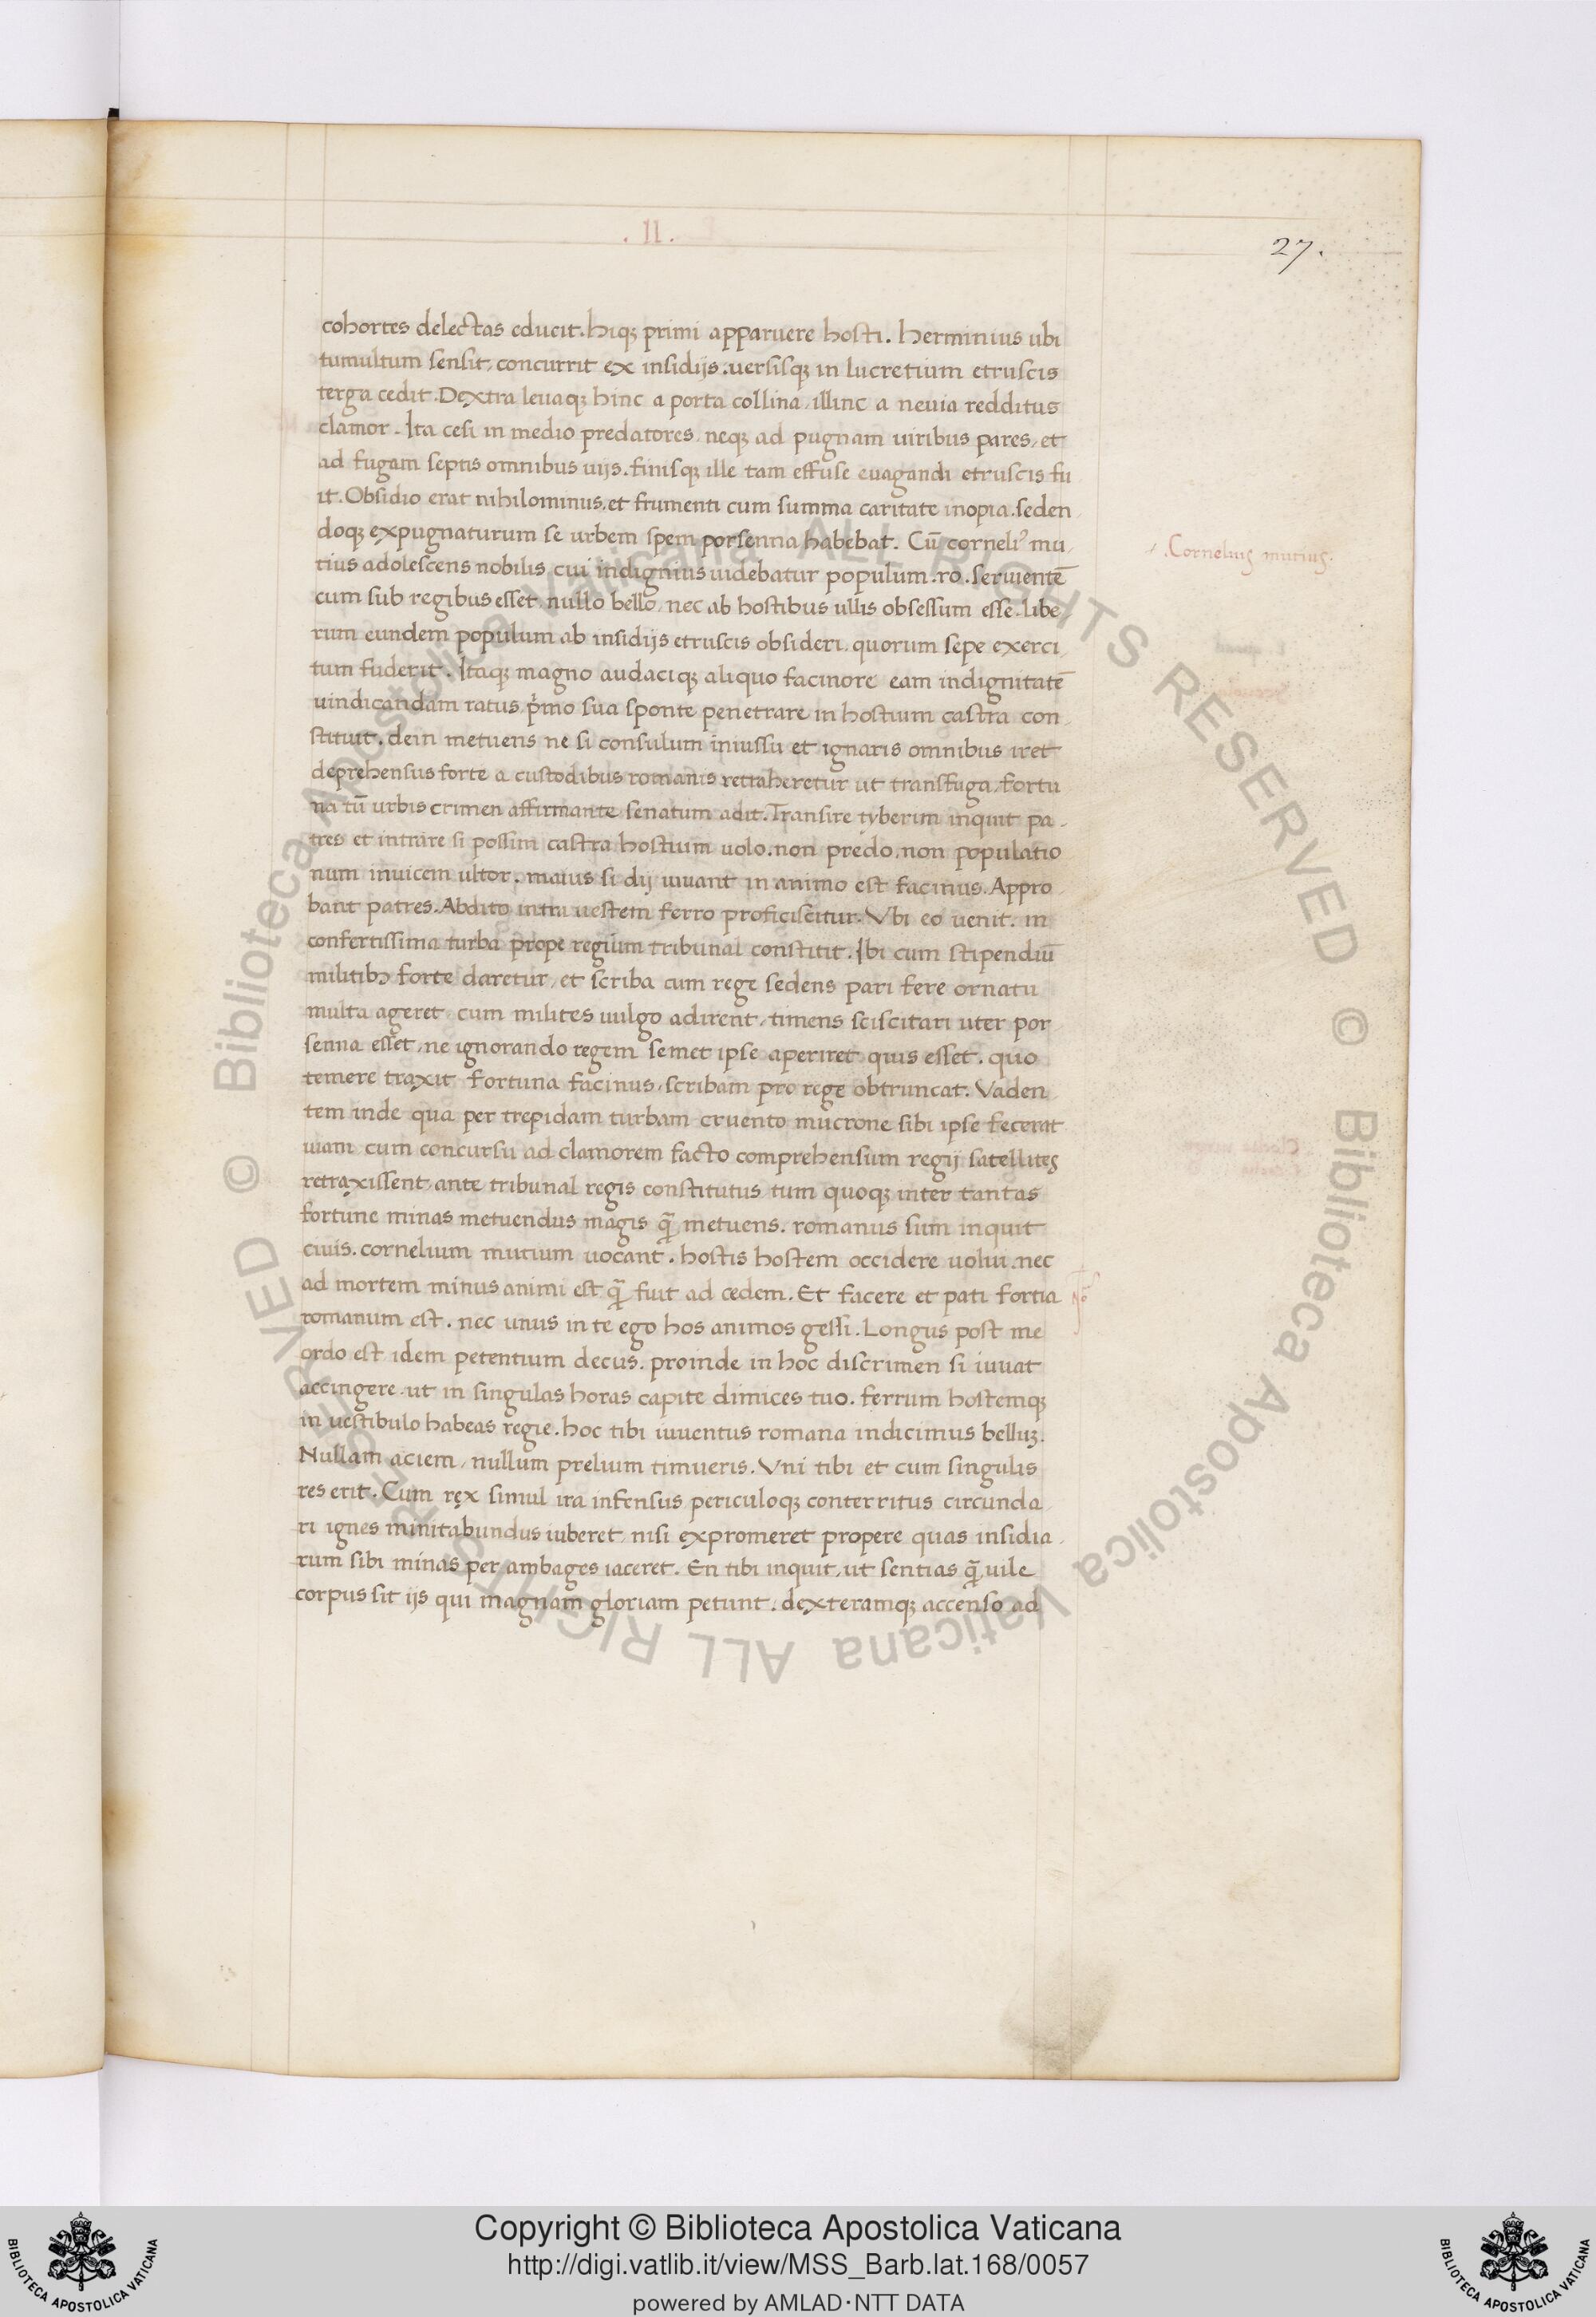 .II.
27.
cohortes delectas educit. hiqȝ primi apparuere hosti. herminius ubi
tumultum sensit, concurrit ex insidijs. uersisqȝ in lucretium etruscis
terga cedit. Dextra leuaqȝ hinc a porta collina, illinc a neuia redditus
clamor. Ita cesi in medio predatores, neqȝ ad pugnam uiribus pares, et
ad fugam septis omnibus uijs. finisqȝ ille tam effuse euagandi etruscis fu
it. Obsidio erat nihilominus, et frumenti cum summa caritate inopia. seden
doqȝ expugnaturum se urbem spem porsenna habebat. Cū corneliꝰ mu
tius adolescens nobilis, cui indignius uidebatur populum .ro. seruientē
cum sub regibus esset, nullo bello, nec ab hostibus ullis obsessum esse. libe
rum eundem populum ab insidijs etruscis obsideri, quorum sepe exerci
tum fuderit. Itaqȝ magno audaciqȝ aliquo facinore eam indignitatē
uindicandam ratus, pͥmo sua sponte penetrare in hostium castra con
stituit. dein metuens ne si consulum iniussu et ignaris omnibus iret
deprehensus forte a custodibus romanis rettaheretur ut transfuga, fortu
na tū urbis crimen affirmante senatum adit. Transire tyberim inquit pa
tres et intrare si possim castra hostium uolo. non predo, non populatio
num inuicem ultor. maius si dij iuuant in animo est facinus. Appro
bant patres. Abdito intra uestem ferro proficiscitur. Vbi eo uenit. in
confertissima turba prope regium tribunal constitit. Ibi cum stipendiū
militibȝ forte daretur, et scriba cum rege sedens pari fere ornatu
multa ageret, cum milites uulgo adirent, timens sciscitari uter por
senna esset, ne ignorando regem semet ipse aperiret quis esset. quo
temere traxit fortuna facinus, scribam pro rege obtruncat. Vaden
tem inde qua per trepidam turbam cruento mucrone sibi ipse fecerat
uiam cum concursu ad clamorem facto comprehensum regij satellites
retraxissent, ante tribunal regis constitutus tum quoqȝ inter tantas
fortune minas metuendus magis q̄ metuens. romanus sum inquit
ciuis. cornelium mutium uocant. hostis hostem occidere uolui. nec
ad mortem minus animi est q̄ fuit ad cedem. Et facere et pati fortia
romanum est. nec unus in te ego hos animos gessi. Longus post me
ordo est idem petentium decus. proinde in hoc discrimen si iuuat
accingere. ut in singulas horas capite dimices tuo. ferrum hostemqȝ
in uestibulo habeas regie. hoc tibi iuuentus romana indicimus belluȝ.
Nullam aciem, nullum prelium timueris. Vni tibi et cum singulis
res erit. Cum rex simul ira infensus periculoqȝ conterritus circunda
ri ignes minitabundus iuberet, nisi expromeret propere quas insidia
rum sibi minas per ambages iaceret. En tibi inquit, ut sentias q̄ uile
corpus sit ijs qui magnam gloriam petunt. dexteramqȝ accenso ad
.Cornelius mutius.
© Biblioteca Apostolica Vaticana ALL RIGHTS RESERVED
© Biblioteca Apostolica Vaticana ALL RIGHTS RESERVED
Copyright © Biblioteca Apostolica Vaticana
http://digi.vatlib.it/view/MSS_Barb.lat.168/0057
powered by AMLAD·NTT DATA
BIBLIOTECA APOSTOLICA VATICANA
BIBLIOTECA APOSTOLICA VATICANA